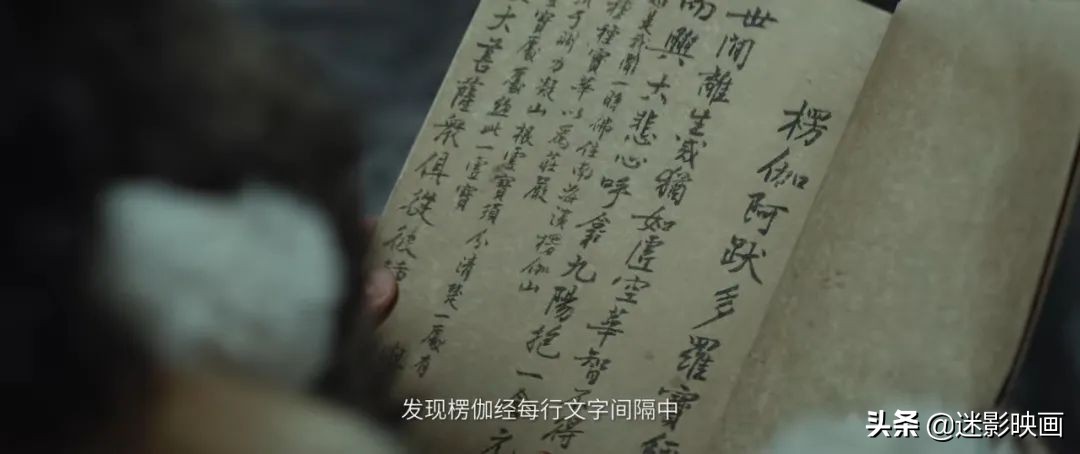 楞伽阿跋多羅寶經
世間離生滅猶如虛空華智不得
而興大悲心呼翕九陽抱一含元
如是我聞一時佛住南海濱楞伽山
種種寶華以為莊嚴
山根靈寶須分清楚一處有
處處總此一靈寶
大菩薩眾俱從彼種
发现楞伽经每行文字间隔中
头条 @迷影映画